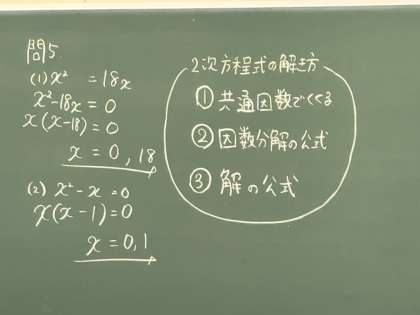 問5.
(1) x² = 18x
x²-18x = 0
x(x-18) = 0
x = 0, 18
(2) x² - x = 0
x(x-1) = 0
x = 0, 1
2次方程式の解き方
① 共通因数でくくる
② 因数分解の公式
③ 解の公式